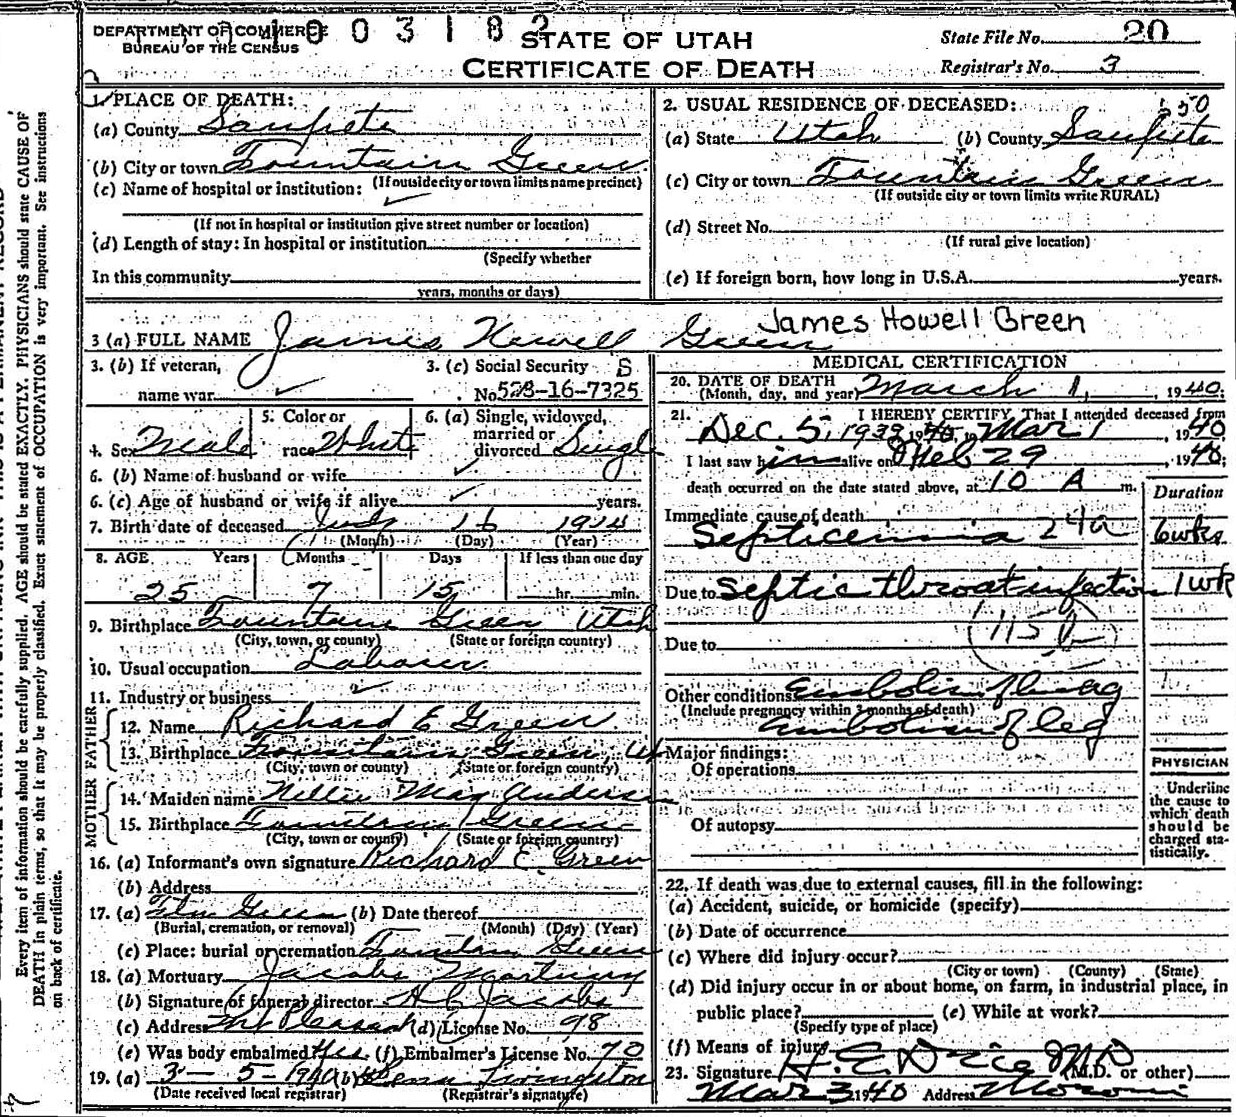 DEPARTMENT OF COMMERCE
BUREAU OF THE CENSUS
003182
STATE OF UTAH
CERTIFICATE OF DEATH
State File No. 20
Registrar's No. 3
1. PLACE OF DEATH:
(a) County Sanpete
(b) City or town Fountain Green
(If outside city or town limits name precinct)
(c) Name of hospital or institution:
(If not in hospital or institution give street number or location)
(d) Length of stay: In hospital or institution
(Specify whether
In this community
years, months or days)
2. USUAL RESIDENCE OF DECEASED:
(a) State Utah (b) County Sanpete
(c) City or town Fountain Green
(If outside city or town limits write RURAL)
(d) Street No.
(If rural give location)
(e) If foreign born, how long in U.S.A. years.
3 (a) FULL NAME James Howell Green
James Howell Green
3. (b) If veteran,
name war
3. (c) Social Security S
No. 528-16-7325
4. Sex Male
5. Color or
race White
6. (a) Single, widowed,
married or
divorced Single
6. (b) Name of husband or wife
6. (c) Age of husband or wife if alive years.
7. Birth date of deceased July 16 1914
(Month) (Day) (Year)
8. AGE Years Months Days If less than one day
25 7 15 hr. min.
9. Birthplace Fountain Green Utah
(City, town, or county) (State or foreign country)
10. Usual occupation Laborer
11. Industry or business
FATHER
12. Name Richard E Green
13. Birthplace Fountain Green, Ut
(City, town or county) (State or foreign country)
MOTHER
14. Maiden name Nellie May Anderson
15. Birthplace Fountain Green
(City, town or county) (State or foreign country)
16. (a) Informant's own signature Richard E. Green
(b) Address
17. (a) Green (b) Date thereof
(Burial, cremation, or removal) (Month) (Day) (Year)
(c) Place: burial or cremation Fountain Green
18. (a) Mortuary Jacobs Mortuary
(b) Signature of funeral director Jacobs
(c) Address Mt Pleasant (d) License No. 98
(e) Was body embalmed Yes (f) Embalmer's License No. 70
19. (a) 3-5-1940 (b) Livingston
(Date received local registrar) (Registrar's signature)
MEDICAL CERTIFICATION
20. DATE OF DEATH
(Month, day, and year) March 1, 1940;
21. I HEREBY CERTIFY, That I attended deceased from
Dec. 5, 1939, to Mar 1, 1940
I last saw him alive on Feb 29, 1940;
death occurred on the date stated above, at 10 A m.
Duration
Immediate cause of death
Septicemia 24a 6wks
Due to Septic throat infection 1wk
115b
Due to
Other conditions Embolism of lung
(Include pregnancy within 3 months of death)
Embolism of leg
Major findings:
Of operations
Of autopsy
PHYSICIAN
Underline
the cause to
which death
should be
charged sta-
tistically.
22. If death was due to external causes, fill in the following:
(a) Accident, suicide, or homicide (specify)
(b) Date of occurrence
(c) Where did injury occur?
(City or town) (County) (State)
(d) Did injury occur in or about home, on farm, in industrial place, in
public place? (e) While at work?
(Specify type of place)
(f) Means of injury
23. Signature (M.D. or other)
Mar 3 1940 Address Moroni
Every item of information should be carefully supplied. AGE should be stated EXACTLY. PHYSICIANS should state CAUSE OF
DEATH in plain terms, so that it may be properly classified. Exact statement of OCCUPATION is very important. See instructions
on back of certificate.